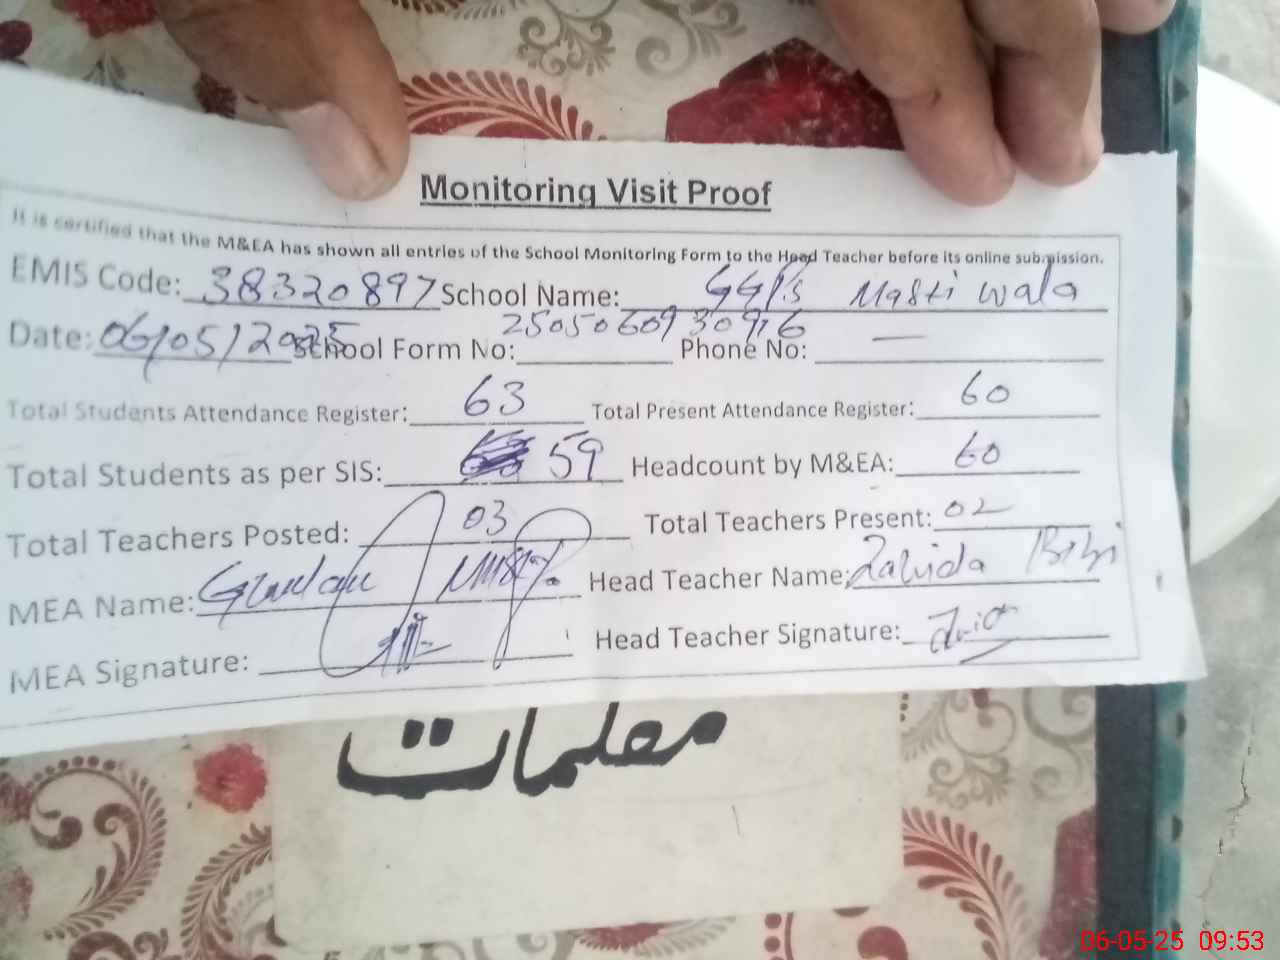 Monitoring Visit Proof
It is certified that the M&EA has shown all entries of the School Monitoring Form to the Head Teacher before its online submission.
EMIS Code: 38320897 School Name: GGPS Masti wala
Date: 06/05/2025 School Form No: 25050609 30916 Phone No: —
Total Students Attendance Register: 63 Total Present Attendance Register: 60
Total Students as per SIS: 59 Headcount by M&EA: 60
Total Teachers Posted: 03 Total Teachers Present: 02
MEA Name: Head Teacher Name: Zahida Bibi
MEA Signature: Head Teacher Signature:
معلمات
06-05-25 09:53